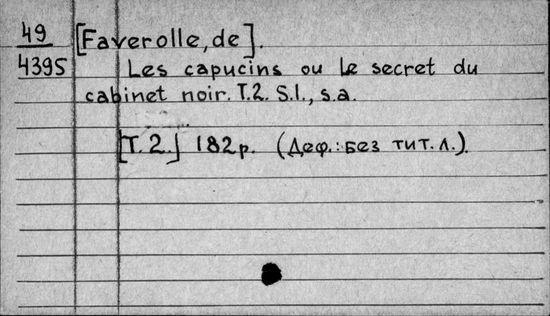 49 [Faverolle, de].
4395 Les capucins ou le secret du
cabinet noir. T.2. S.l., s.a.
[T.2.] 182p. (Деф.: без тит. л.).